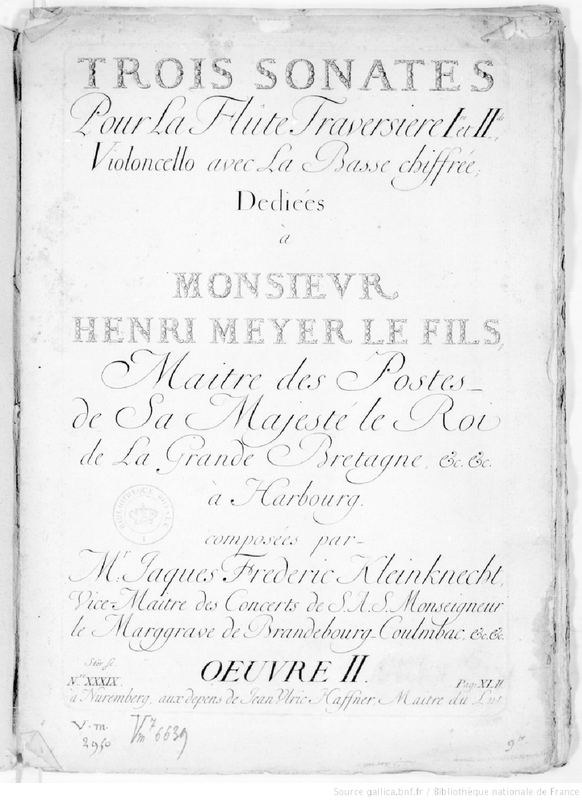 TROIS SONATES
Pour La Flûte Traversiere I.re et II.de,
Violoncello avec La Basse chiffrée;
Dediées
à
MONSIEVR
HENRI MEYER LE FILS,
Maitre des Postes
de Sa Majesté le Roi
de La Grande Bretagne, &c. &c.
à Harbourg.
composées par
M.r Jaques Frederic Kleinknecht,
Vice-Maitre des Concerts de S.A.S. Monseigneur
le Marggrave de Brandebourg-Coulmbac, &c. &c.
OEUVRE II.
N.ro XXXIX.
Pag. XLII
à Nuremberg, aux depens de Jean Ulric Haffner, Maitre du Lut
V.m.
2950
Vm7 6639
Source gallica.bnf.fr / Bibliothèque nationale de France